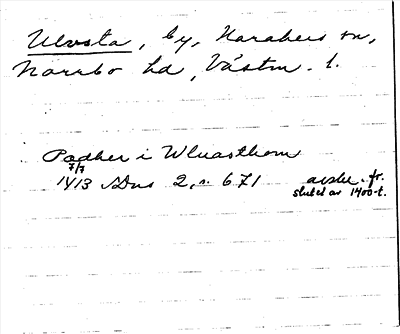 Ulvsta, by, Harakers sn,
Norrbo hd, Västm. l.
Padher i Wluasthom
7/7
1413 SDns 2, s. 671 avskr. fr.
slutet av 1400-t.